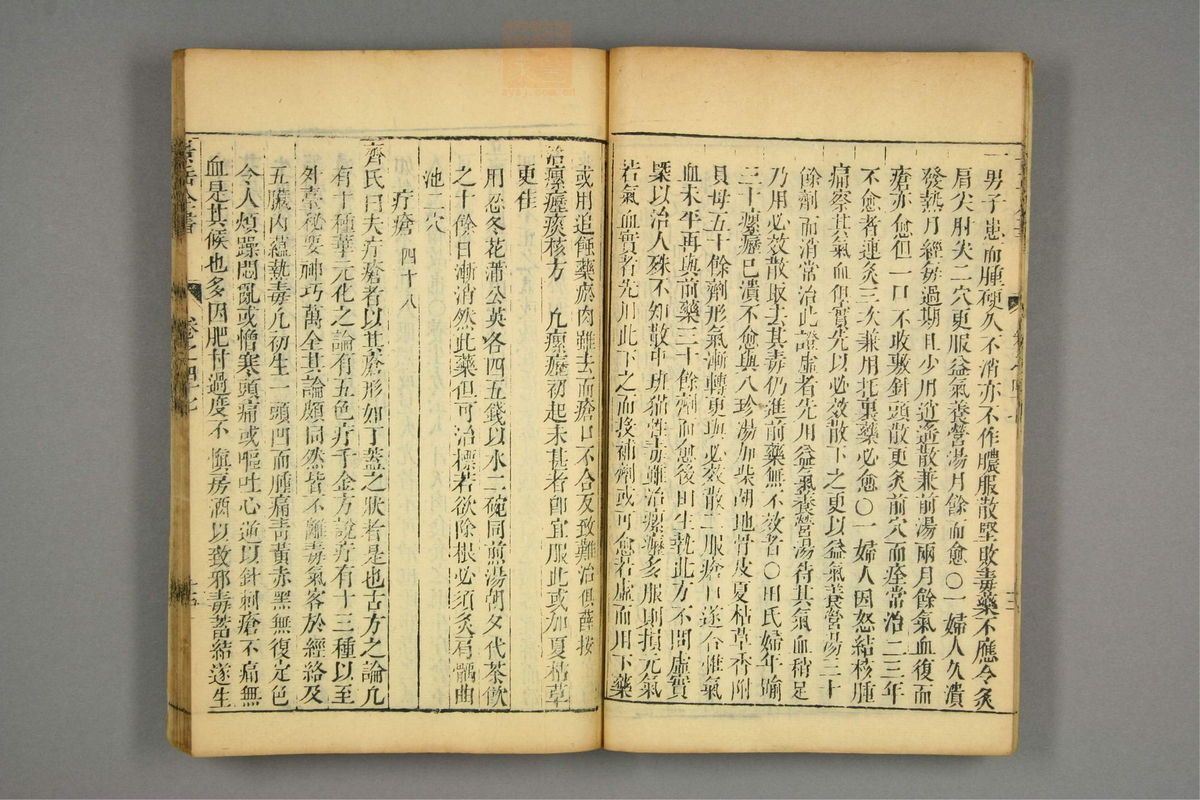 男子患而腫硬久不消亦不作膿服散堅敗毒藥不應令灸
肩尖肘尖二穴更服益氣養營湯月餘而愈〇一婦人久潰
發熱月經每過期且少用逍遙散兼前湯兩月餘氣血復而
瘡亦愈但一口不收敷針頭散更灸前穴而痊常治二三年
不愈者連灸三次兼用托裏藥必愈〇一婦人因怒結核腫
痛察其氣血俱實先以必效散下之更以益氣養營湯三十
餘劑而消常治此證虛者先用益氣養營湯待其氣血稍足
乃用必效散取去其毒仍進前藥無不效者〇田氏婦年踰
三十瘰癧已潰不愈與八珍湯加柴胡地骨皮夏枯草香附
貝母五十餘劑形氣漸轉更與必效散二服瘡口遂合惟氣
血未平再與前藥三十餘劑而愈後田生執此方不問虛實
槩以治人殊不知散中斑猫性毒雖治瘰癧多服則損元氣
若氣血實者先用此下之而投補劑或可愈若虛而用下藥
景岳全書
卷之四七
或用追蝕藥瘀肉雖去而瘡口不合反致難治俱薛按
治瘰癧痰核方 凡瘰癧初起未甚者卽宜服此或加夏枯草
更佳
用忍冬花蒲公英各四五錢以水二碗同煎湯朝夕代茶飲
之十餘日漸消然此藥但可治標若欲除根必須灸肩髃曲
池二穴
疔瘡 四十八
齊氏曰夫疔瘡者以其瘡形如丁蓋之狀者是也古方之論凡
有十種華元化之論有五色疔千金方說疔有十三種以至
外臺秘要神巧萬全其論頗同然皆不離毒氣客於經絡及
五臟內蘊熱毒凡初生一頭凹而腫痛青黃赤黑無復定色
令人煩躁悶亂或憎寒頭痛或嘔吐心逆以針刺瘡不痛無
血是其候也多因肥甘過度不愼房酒以致邪毒蓄結遂生